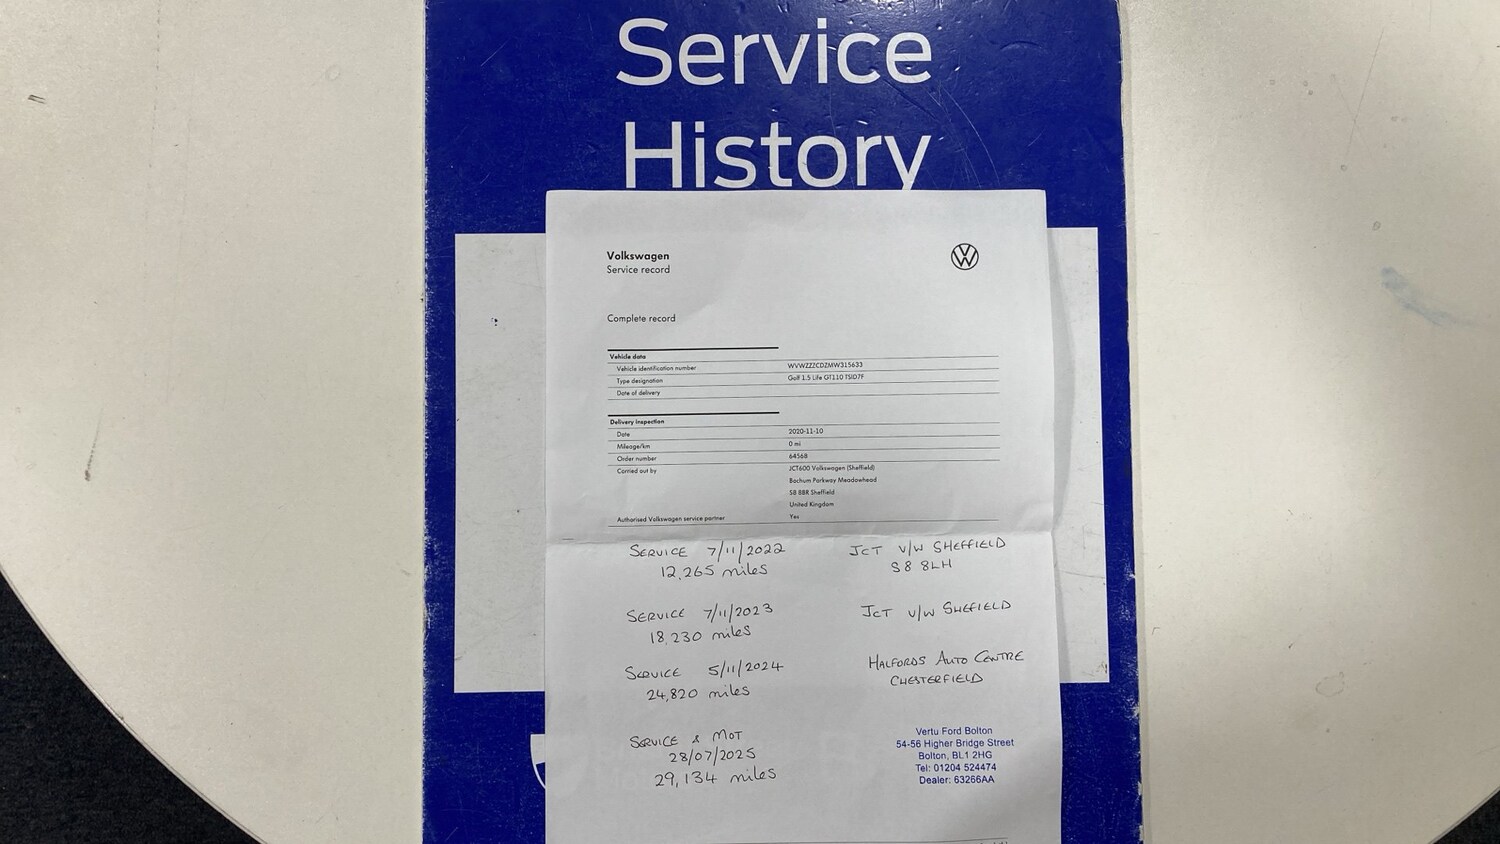 Service
History
Volkswagen
Service record
Complete record
Vehicle data
Vehicle identification number WVWZZZCDZMW315633
Type designation Golf 1.5 Life GT110 TSID7F
Date of delivery
Delivery inspection
Date 2020-11-10
Mileage/km 0 mi
Order number 64568
Carried out by JCT600 Volkswagen (Sheffield)
Bochum Parkway Meadowhead
S8 8BR Sheffield
United Kingdom
Authorised Volkswagen service partner Yes
SERVICE 7/11/2022 JCT V/W SHEFFIELD
12,265 miles S8 8LH
SERVICE 7/11/2023 JCT V/W SHEFFIELD
18,230 miles
SERVICE 5/11/2024 HALFORDS AUTO CENTRE
24,820 miles CHESTERFIELD
SERVICE & MOT
28/07/2025
29,134 miles
Vertu Ford Bolton
54-56 Higher Bridge Street
Bolton, BL1 2HG
Tel: 01204 524474
Dealer: 63266AA